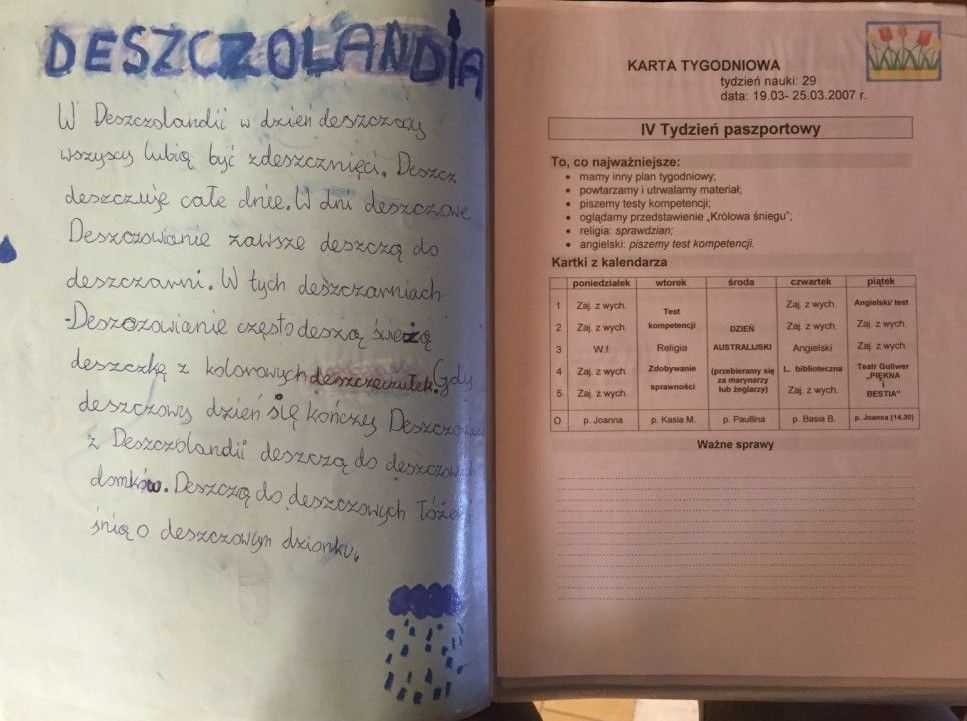 DESZCZOLANDIA
W Deszczolandii w dzień deszczowy
wszyscy lubią być zdeszcznięci. Deszcz
deszczuje całe dnie. W dni deszczowe
Deszczowianie zawsze deszczą do
deszczarni. W tych deszczarniach
-Deszczowianie często deszczą świeżą
deszczkę z kolorowych deszczeczułek. Gdy
deszczowy dzień się kończy Deszczowianie
z Deszczolandii deszczą do deszczowych
domków. Deszczą do deszczowych łóżek
śnią o deszczowym dzionku.
KARTA TYGODNIOWA
tydzień nauki: 29
data: 19.03- 25.03.2007 r.
IV Tydzień paszportowy
To, co najważniejsze:
• mamy inny plan tygodniowy;
• powtarzamy i utrwalamy materiał;
• piszemy testy kompetencji;
• oglądamy przedstawienie „Królowa śniegu”;
• religia: sprawdzian;
• angielski: piszemy test kompetencji.
Kartki z kalendarza
poniedziałek wtorek środa czwartek piątek
1 Zaj. z wych. Test kompetencji DZIEŃ AUSTRALIJSKI (przebieramy się za marynarzy lub żeglarzy) Zaj. z wych. Angielski/ test
2 Zaj. z wych. Zaj. z wych. Zaj. z wych.
3 W.f. Religia Angielski Zaj. z wych.
4 Zaj. z wych. Zdobywanie sprawności L. biblioteczna Teatr Guliwer „PIĘKNA i BESTIA”
5 Zaj. z wych. Zaj. z wych.
O p. Joanna p. Kasia M. p. Paulina p. Basia B. p. Joanna (14.30)
Ważne sprawy